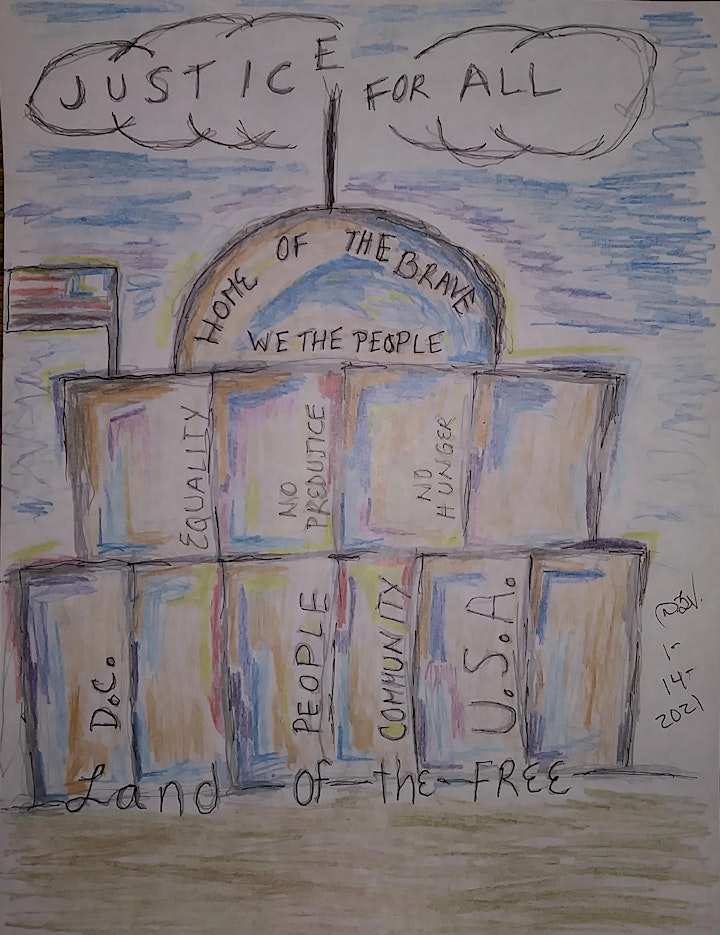 JUSTICE FOR ALL
HOME OF THE BRAVE
WE THE PEOPLE
EQUALITY
NO
PREDUTICE
NO
HUNGER
D.C.
PEOPLE
COMMUNITY
U.S.A.
1-
14-
2021
Land of the FREE